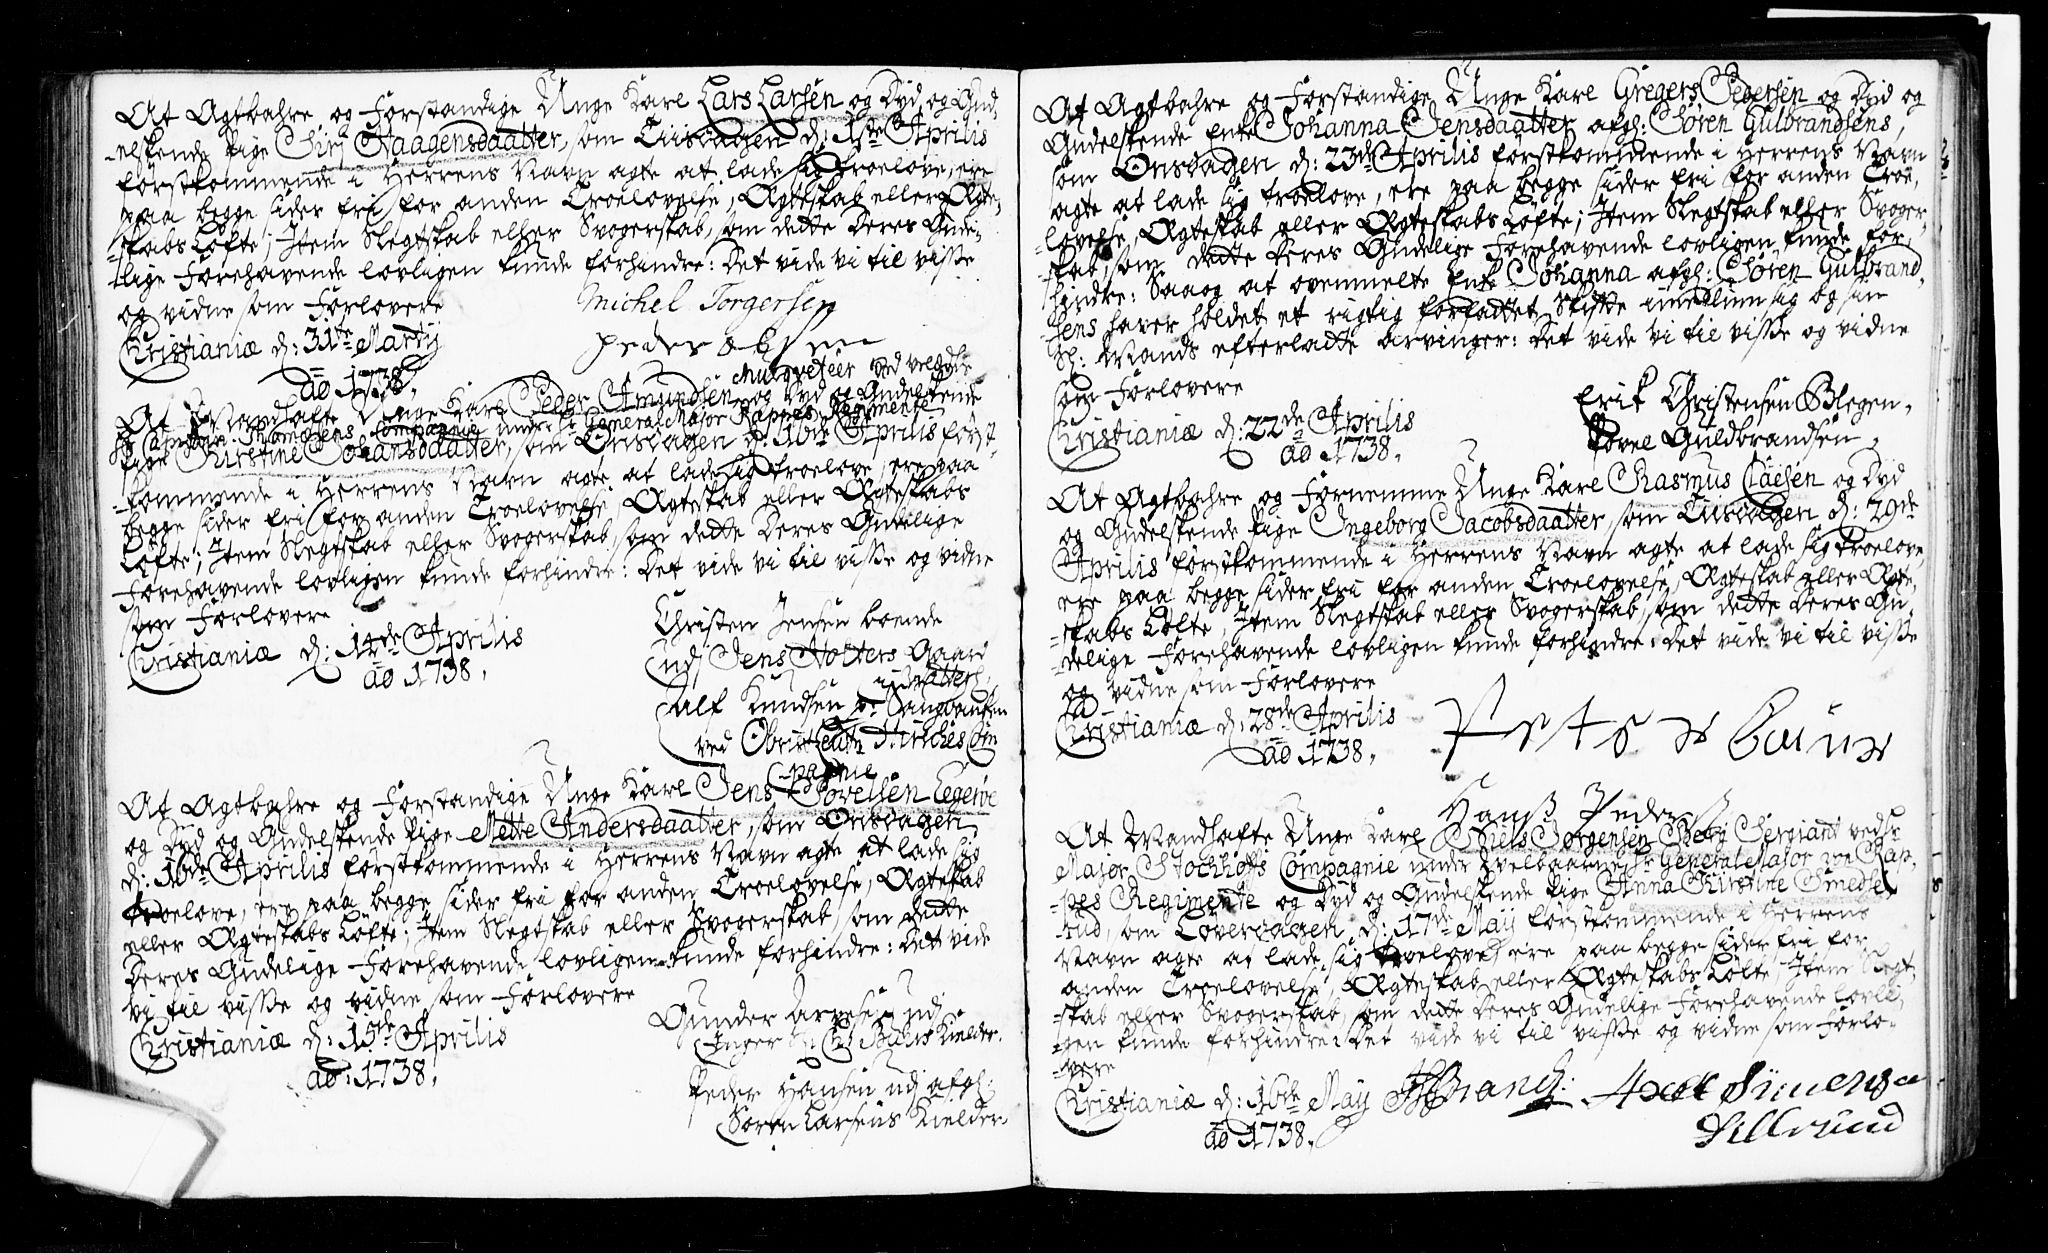 At Agtbahre og Forstandige Unge Karl Lars Larsen og Dyd og Gud,
-elskende Pige Sirj Haagensdaatter, som Tiisdagen d: 1ste Aprilis
førstkommende i Herrens Navn agte at lade sig troelove, ere
paa begge sider fri for anden Troelovelse, Ægteskab eller Ægte-
-skabs Løfte; Item Slegtskab eller Svogerskab, som dette Deres Gude-
-lige Forehavende lovligen kunde forhindre: Det vide vi til visse
og vidne som Forlovere
Michel Torgersen
Christianiæ d: 31te Martij
ao 1738.
Peder Olsen
At Mandhafte Unge Karl Peder Amundsen Musqveteer ved velædle
Hr Capitain Compagnie under Hr General Major Rappes Regimente og Dyd og Gudelskende
Pige Kirstine Johansdaatter, som Onsdagen d: 16de Aprilis først-
-kommende i Herrens Navn agte at lade sig troelove, ere paa
begge sider fri for anden Troelovelse, Ægteskab eller Ægteskabs
Løfte; Item Slegtskab eller Svogerskab, som dette Deres Gudelige
Forehavende lovligen kunde forhindre: Det vide vi til visse og vidne
som Forlovere
Christianiæ d: 14de Aprilis
ao 1738.
Christen Jensen boende
udj Jens Holters Gaard
Alf Knudsen
ved Obristleutn Hirsches Com
-pagnie
At Agtbahre og Forstandige Unge Karl Jens Povelsen Egerøe
og Dyd og Gudelskende Pige Mette Andersdaatter, som Onsdagen
d: 16de Aprilis førstkommende i Herrens Navn agte at lade sig
troelove, ere paa begge sider fri for anden Troelovelse, Ægteskab
eller Ægteskabs Løfte; Item Slegtskab eller Svogerskab, som dette
Deres Gudelige Forehavende lovligen kunde forhindre: Det vide
vi til visse og vidne som Forlovere
Christianiæ d: 15de Aprilis
ao: 1738.
Gunder Arvesen udj
Inger Kielder.
Peder Hansen udj afgl:
Søren Larsens Kielder.
At Agtbahre og Forstandige Unge Karl Gregers Pedersen og Dyd og
Gudelskende Enke Johanna Jensdaatter afgl: Søren Gulbrandsens,
som Onsdagen d: 23de Aprilis førstkommende i Herrens Navn
agte at lade sig troelove, ere paa begge sider fri for anden Troe-
-lovelse, Ægteskab eller Ægteskabs Løfte; Item Slegtskab eller Svoger-
-skab, som dette Deres Gudelige Forehavende lovligen kunde for-
-hindre: Saa og at ovenmelte Enke Johanna afgl: Søren Gulbrand-
-sens haver holdet et rigtig forfattet Skifte imellum sig og sin
Sl: Mands efterladte Arvinger: Det vide vi til visse og vidne
som Forlovere
Christianiæ d: 22de Aprilis
ao 1738.
Erik Christensen Blegen.
Povel Guldbrandsen.
At Agtbahre og Fornemme Unge Karl Rasmus Claesen og Dyd
og Gudelskende Pige Ingeborg Jacobsdaatter, som Tiisdagen d: 29de
Aprilis førstkommende i Herrens Navn agte at lade sig troelove,
ere paa begge sider fri for anden Troelovelse, Ægteskab eller Ægte-
-skabs Løfte, Item Slegtskab eller Svogerskab, som dette Deres Gu-
-delige Forehavende lovligen kunde forhindre: Det vide vi til visse
og vidne som Forlovere
Christianiæ d: 28de Aprilis
ao 1738.
Hans
At Mandhafte Unge Karl Niels Jørgensen Berg Sergiant ved Hr
Major Stockhoffs Compagnie under Hr General Major von Rap-
-pes Regimente og Dyd og Gudelskende Pige Anna Kirstine Smeds-
-rud, som Løverdagen d: 17de Maij førstkommende i Herrens
Navn agte at lade sig troelove, ere paa begge sider fri for
anden Troelovelse, Ægteskab eller Ægteskabs Løfte, Item Slegt-
-skab eller Svogerskab, som dette Deres Gudelige Forehavende lovli-
-gen kunde forhindre: Det vide vi til visse og vidne som Forlo-
-vere
Christianiæ d: 16de Maij
ao 1738.
Axel Simensen
Sillerud